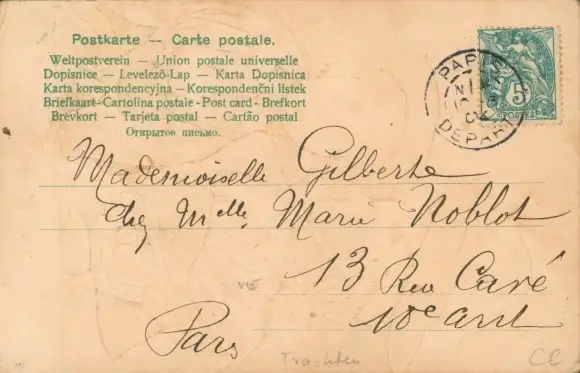 Postkarte — Carte postale.
Weltpostverein — Union postale universelle
Dopisnice — Levelező-Lap — Karta Dopisnica
Karta korespondencyjna — Korespondenční listek
Briefkaart - Cartolina postale - Post card - Brefkort
Brevkort — Tarjeta postal — Cartão postal
Открытое письмо.
5
POSTES
DEPART
Mademoiselle Gilberte
chez Melle Marie Noblot
13 Rue Cavé
18e arrt
Paris
CC